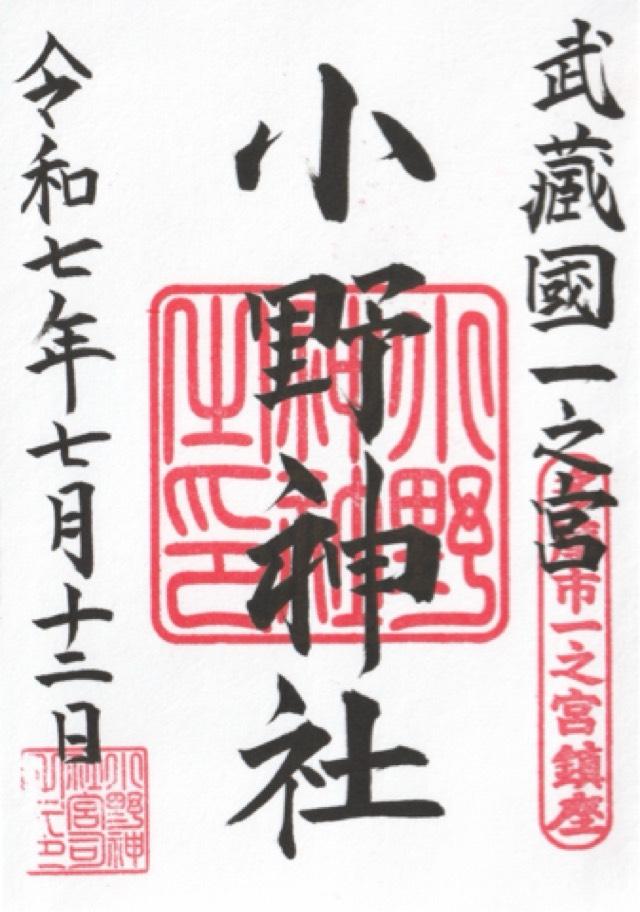 武藏國一之宮
多摩市一之宮鎮座
小野神社
小野
神社
之印
令和七年七月十二日
小野神
社宮司
之印